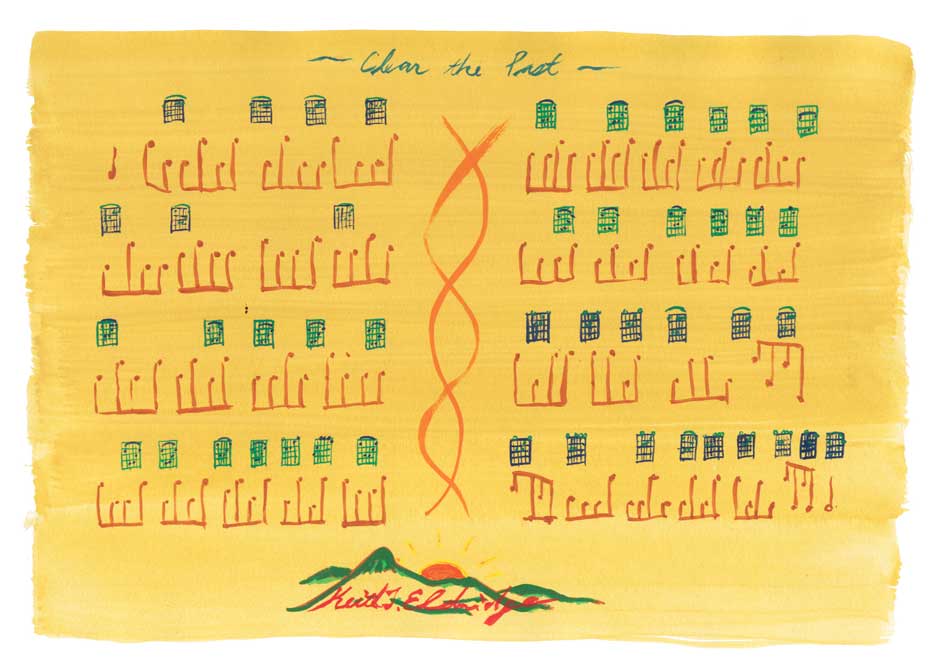 ~ Clear the Past ~
Keith F. Eldridge